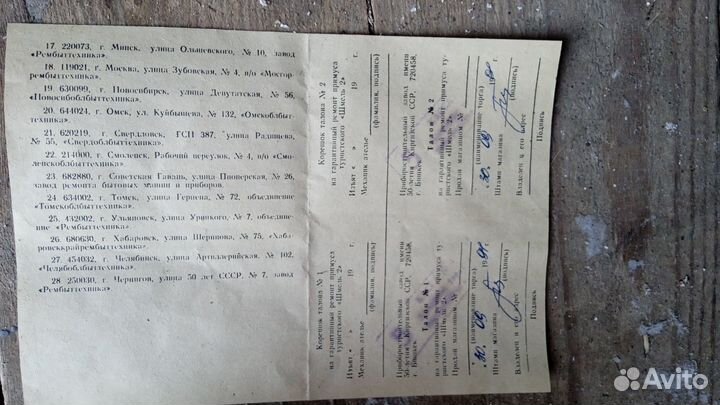 17 220073, г. Минск, улица Ольшевского, № 10, завод
«Рембыттехника».
18. 119021, г. Москва, улица Зубовская, № 4, п/о «Мостор-
рембыттехника».
19. 630099, г. Новосибирск, улица Депутатская, № 56,
«Новосибоблбыттехника».
20. 644024, г. Омск, ул. Куйбышева, № 132, «Омскоблбыт-
техника».
21. 620219, г. Свердловск, ГСП 387, улица Радищева,
№ 55, «Свердоблбыттехника».
22. 214000, г. Смоленск, Рабочий переулок, № 4, п/о «Смо-
ленскоблбыттехника».
23. 682880, г. Советская Гавань, улица Пионерская, № 26,
завод ремонта бытовых машин и приборов.
24 634002, г. Томск, улица Герцена, № 72, объединение
«Томскоблбыттехника».
25. 432002, г. Ульяновск, улица Урицкого, № 7, объеди-
нение «Рембыттехника».
26. 680630, г. Хабаровск, улица Шеронова, № 75, «Хаба-
ровсккрайрембыттехника».
27. 454032, г. Челябинск, улица Артиллерийская, № 102,
«Челябоблбыттехника».
28. 250030, г. Чернигов, улица 50 лет СССР, № 7, завод
«Рембыттехника».
Корешок талона № 2
на гарантийный ремонт примуса
туристского «Шмель 2»
Изъят « » 19 г.
Механик ателье
(фамилия, подпись)
Приборостроительный завод имени
50-летия Киргизской ССР, 720458,
г. Бишкек
Талон № 2
на гарантийный ремонт примуса ту-
ристского «Шмель 2»
Продан магазином №
(наименование торга)
30. 09 199 г.
Штамп магазина
(подпись)
Владелец и его адрес
Подпись
Корешок талона № 1
на гарантийный ремонт примуса
туристского «Шмель 2»
Изъят « » 19 г.
Механик ателье
(фамилия, подпись)
Приборостроительный завод имени
50-летия Киргизской ССР, 720458,
г. Бишкек
Талон № 1
на гарантийный ремонт примуса ту-
ристского «Шмель 2»
Продан магазином №
(наименование торга)
30. 09 199 г.
Штамп магазина
(подпись)
Владелец и его адрес
Подпись
Avito